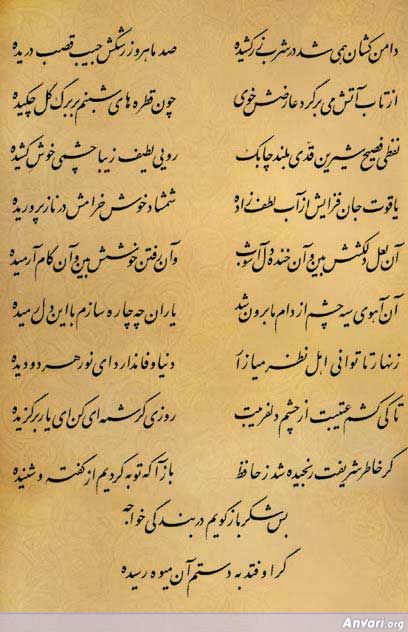 دامن کشان همی شد در شرب زرکشیده صد ماهرو ز رشکش جیب قصب دریده
از تاب آتش می بر گرد عارضش خوی چون قطره های شبنم بر برگ گل چکیده
لفظی فصیح شیرین قدی بلند چابک رویی لطیف زیبا چشمی خوش کشیده
یاقوت جان فزایش از آب لطف زاده شمشاد خوش خرامش در ناز پروریده
آن لعل دلکشش بین وآن خنده دل آشوب وآن رفتن خوشش بین وآن گام آرمیده
آن آهوی سیه چشم از دام ما برون شد یاران چه چاره سازم با این دل رمیده
زنهار تا توانی اهل نظر میازار دنیا وفا ندارد ای نور هر دو دیده
تا کی کشم عتیبت از چشم دلفریبت روزی کرشمه ای کن ای یار برگزیده
گر خاطر شریفت رنجیده شد ز حافظ بازآ که توبه کردیم از گفته و شنیده
بس شکر بازگویم در بندگی خواجه
گر اوفتد به دستم آن میوه رسیده
Anvari.org